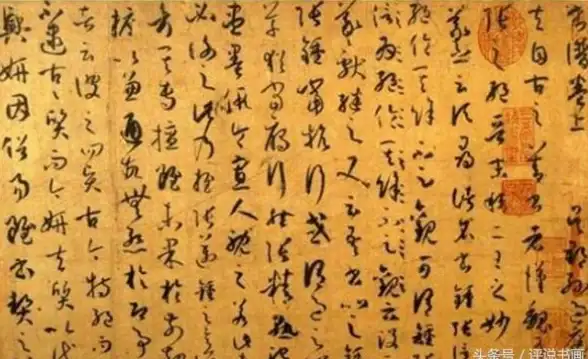 書譜卷上 吳郡孫過庭
夫自古之善書者漢魏
張之絕晉末稱二王之妙
羲之云頃尋諸名書鍾張信
絕倫其餘不足觀可謂鍾
為絕倫其餘不足觀云沒
羲獻繼之又云吾書比之鍾
張鍾當抗行或謂過
草猶當雁行然張精熟
盡墨假令寡人耽之若此
必謝之此乃推張邁鍾之意
考其專擅雖未果於前
摭以兼通故無慚於即事
者云彼之四賢古今特絕而
不逮古古質而今妍夫質以代
興妍因俗易雖書契之
头条号 / 评说书画